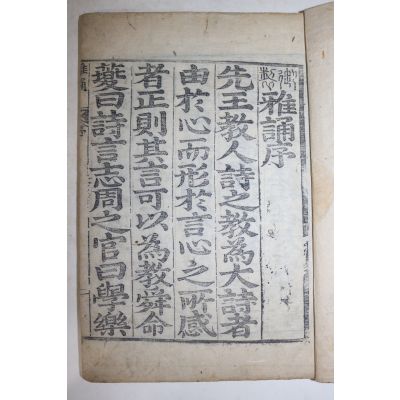 御製雅誦序
先王敎人詩之敎為大詩者
由於心而形於言心之所感
者正則其言可以為敎舜命
夔曰詩言志周之官曰學樂
雅誦 序 一